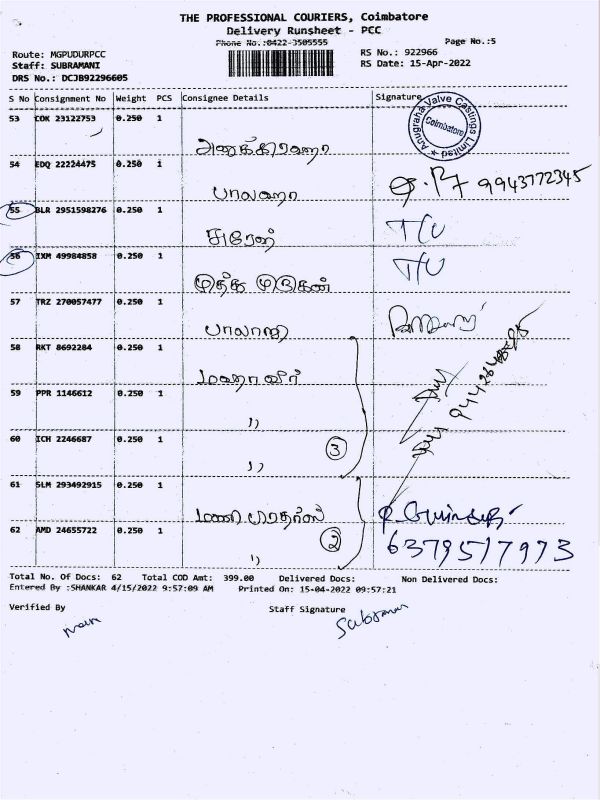 THE PROFESSIONAL COURIERS, Coimbatore
Delivery Runsheet - PCC
Phone No.:0422-3505555
Page No.:5
Route: MGPUDURPCC
RS No.: 922966
Staff: SUBRAMANI
RS Date: 15-Apr-2022
DRS No.: DCJB92296605
S No Consignment No Weight PCS Consignee Details Signature
Anugraha Valve Castings Limited
Coimbatore
53 COK 23122753 0.250 1
54 EDQ 22224475 0.250 1
பாலாஜி 9943772345
55 BLR 2951598276 0.250 1
சுரேஷ் T/U
56 IXM 49984858 0.250 1
முத்து முருகன் T/U
57 TRZ 270057477 0.250 1
பாலாஜி
58 RKT 8692284 0.250 1
59 PPR 1146612 0.250 1
"
60 ICH 2246687 0.250 1
" 3
61 SLM 293492915 0.250 1
62 AMD 24655722 0.250 1
" 2 6379517973
Total No. Of Docs: 62 Total COD Amt: 399.00 Delivered Docs: Non Delivered Docs:
Entered By :SHANKAR 4/15/2022 9:57:09 AM Printed On: 15-04-2022 09:57:21
Verified By Staff Signature